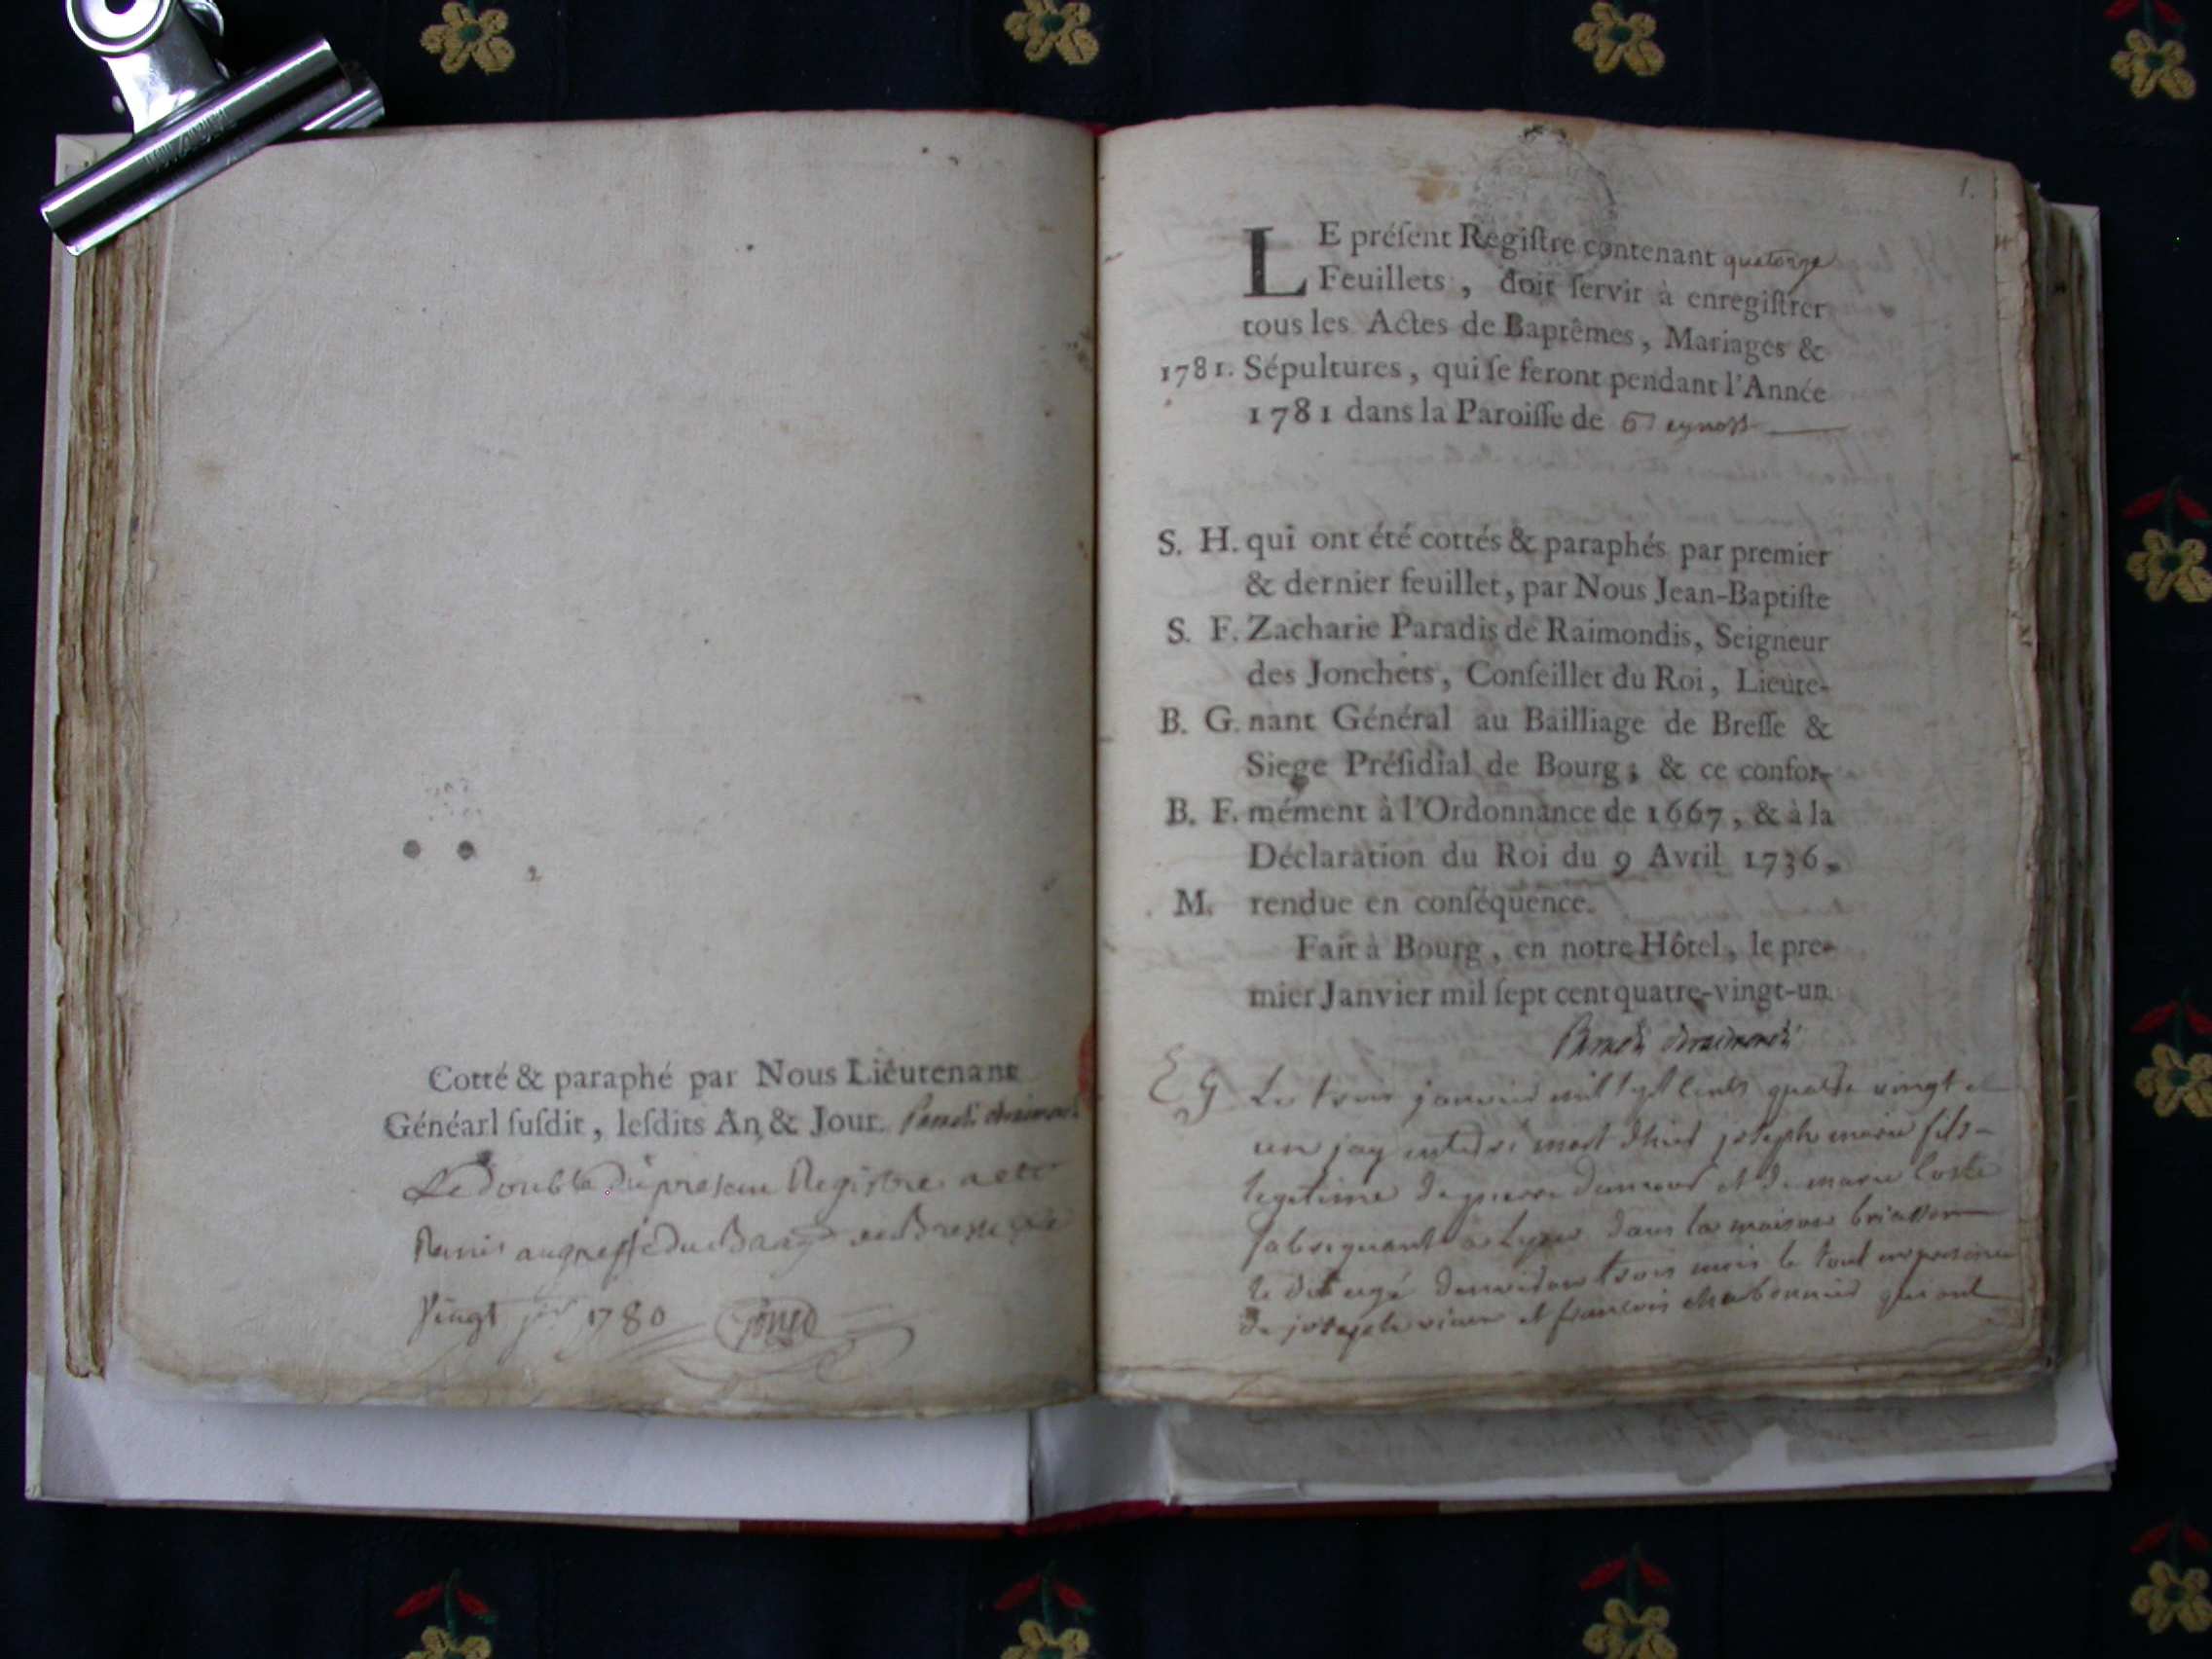 Cotté & paraphé par Nous Lieutenant
Généarl ſuſdit, leſdits An & Jour.
Le double du present Registre a ete
Remis au greffe du
Vingt 1780
1.
LE préſent Regiſtre contenant quatorze
Feuillets, doit ſervir à enregiſtrer
tous les Actes de Baptêmes, Mariages &
1781. Sépultures, qui ſe feront pendant l'Année
1781 dans la Paroiſſe de
S. H. qui ont été cottés & paraphés par premier
& dernier feuillet, par Nous Jean-Baptiſte
S. F. Zacharie Paradis de Raimondis, Seigneur
des Jonchets, Conſeillet du Roi, Lieute-
B. G. nant Général au Bailliage de Breſſe &
Siege Préſidial de Bourg; & ce confor-
B. F. mément à l'Ordonnance de 1667, & à la
Déclaration du Roi du 9 Avril 1736,
M. rendue en conſéquence.
Fait à Bourg, en notre Hôtel, le pre-
mier Janvier mil ſept cent quatre-vingt-un.
Le trois janvier mil sept cents quatre vingt et
un jay enterré mort d'hier joseph marie fils
legitime de pierre et de marie Coste
fabriquant a Lyon dans la maison
le dit agé trois mois le tout en presence
de joseph et francois charbonnier qui ont